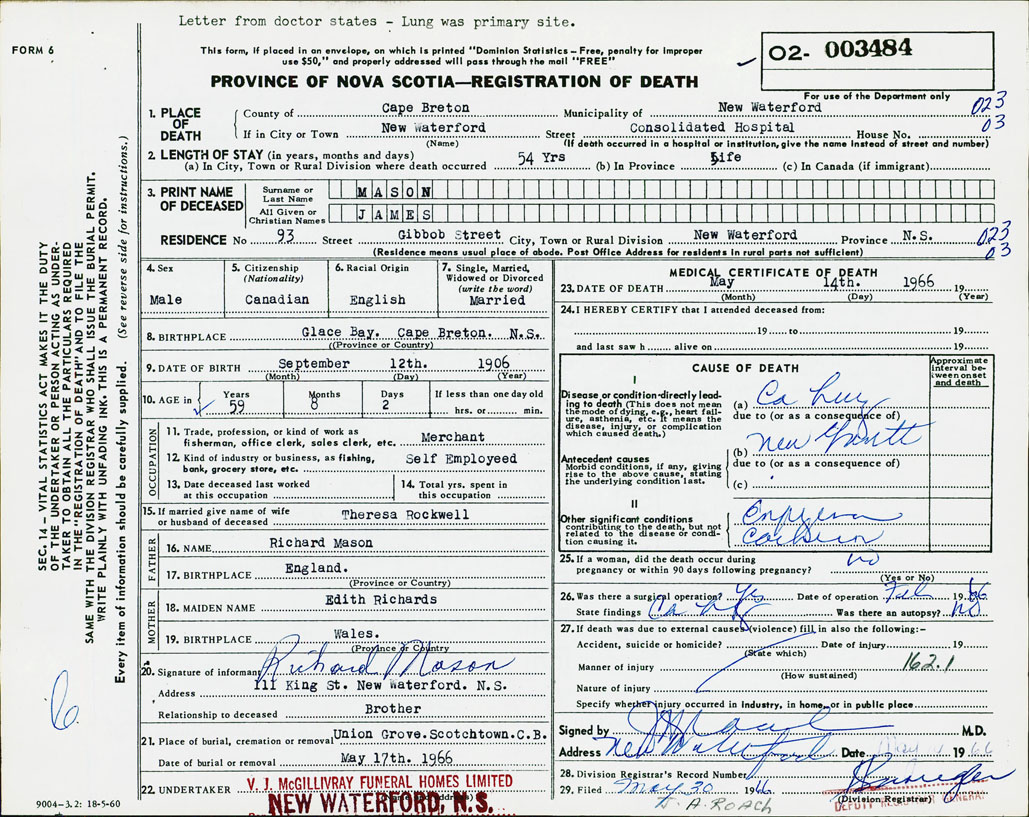 Letter from doctor states - Lung was primary site.
FORM 6
This form, if placed in an envelope, on which is printed "Dominion Statistics—Free, penalty for improper
use $50," and properly addressed will pass through the mail "FREE"
PROVINCE OF NOVA SCOTIA—REGISTRATION OF DEATH
02- 003484
For use of the Department only
SEC. 14 – VITAL STATISTICS ACT MAKES IT THE DUTY
OF THE UNDERTAKER OR PERSON ACTING AS UNDER-
TAKER TO OBTAIN ALL THE PARTICULARS REQUIRED
IN THE "REGISTRATION OF DEATH" AND TO FILE THE
SAME WITH THE DIVISION REGISTRAR WHO SHALL ISSUE THE BURIAL PERMIT.
WRITE PLAINLY WITH UNFADING INK. THIS IS A PERMANENT RECORD.
Every item of information should be carefully supplied. (See reverse side for instructions.)
1. PLACE OF DEATH
County of Cape Breton Municipality of New Waterford 023
If in City or Town New Waterford Street Consolidated Hospital House No. 03
(Name) (If death occurred in a hospital or institution, give the name instead of street and number)
2. LENGTH OF STAY (in years, months and days)
(a) In City, Town or Rural Division where death occurred 54 Yrs (b) In Province Life (c) In Canada (if immigrant)
3. PRINT NAME OF DECEASED
Surname or Last Name MASON
All Given or Christian Names JAMES
RESIDENCE No 93 Street Gibbob Street City, Town or Rural Division New Waterford Province N.S. 023
(Residence means usual place of abode. Post Office Address for residents in rural parts not sufficient) 03
4. Sex Male
5. Citizenship (Nationality) Canadian
6. Racial Origin English
7. Single, Married, Widowed or Divorced (write the word) Married
8. BIRTHPLACE Glace Bay. Cape Breton. N.S.
(Province or Country)
9. DATE OF BIRTH September 12th. 1906
(Month) (Day) (Year)
10. AGE in Years 59 Months 8 Days 2 If less than one day old hrs. or min.
OCCUPATION
11. Trade, profession, or kind of work as
fisherman, office clerk, sales clerk, etc. Merchant
12. Kind of industry or business, as fishing,
bank, grocery store, etc. Self Employeed
13. Date deceased last worked
at this occupation
14. Total yrs. spent in
this occupation
15. If married give name of wife
or husband of deceased Theresa Rockwell
FATHER
16. NAME Richard Mason
17. BIRTHPLACE England.
(Province or Country)
MOTHER
18. MAIDEN NAME Edith Richards
19. BIRTHPLACE Wales.
(Province or Country)
20. Signature of informant Richard Mason
Address 111 King St. New Waterford. N.S.
Relationship to deceased Brother
21. Place of burial, cremation or removal Union Grove.Scotchtown.C.B.
Date of burial or removal May 17th. 1966
22. UNDERTAKER V. J. McGILLIVRAY FUNERAL HOMES LIMITED
NEW WATERFORD, N.S.
9004-3.2: 18-5-60
MEDICAL CERTIFICATE OF DEATH
23. DATE OF DEATH May 14th. 1966 19
(Month) (Day) (Year)
24. I HEREBY CERTIFY that I attended deceased from:
19 to 19
and last saw h alive on 19
CAUSE OF DEATH
Approximate interval between onset and death
I
Disease or condition directly leading to death (This does not mean the mode of dying, e.g., heart failure, asthenia, etc. It means the disease, injury, or complication which caused death.)
(a) Ca Lung
due to (or as a consequence of)
Antecedent causes
Morbid conditions, if any, giving rise to the above cause, stating the underlying condition last.
(b) New Growth
due to (or as a consequence of)
(c)
II
Other significant conditions
contributing to the death, but not related to the disease or condition causing it.
25. If a woman, did the death occur during
pregnancy or within 90 days following pregnancy? no
(Yes or No)
26. Was there a surgical operation? Yes Date of operation Feb 1966
State findings Ca Was there an autopsy? no
27. If death was due to external causes (violence) fill in also the following:–
Accident, suicide or homicide? Date of injury 19
(State which)
Manner of injury 162.1
(How sustained)
Nature of injury
Specify whether injury occurred in industry, in home, or in public place
Signed by M.D.
Address New Waterford Date May 1966
28. Division Registrar's Record Number
29. Filed May 30 1966
(Division Registrar)
DEPUTY REGISTRAR GENERAL
A. ROACH